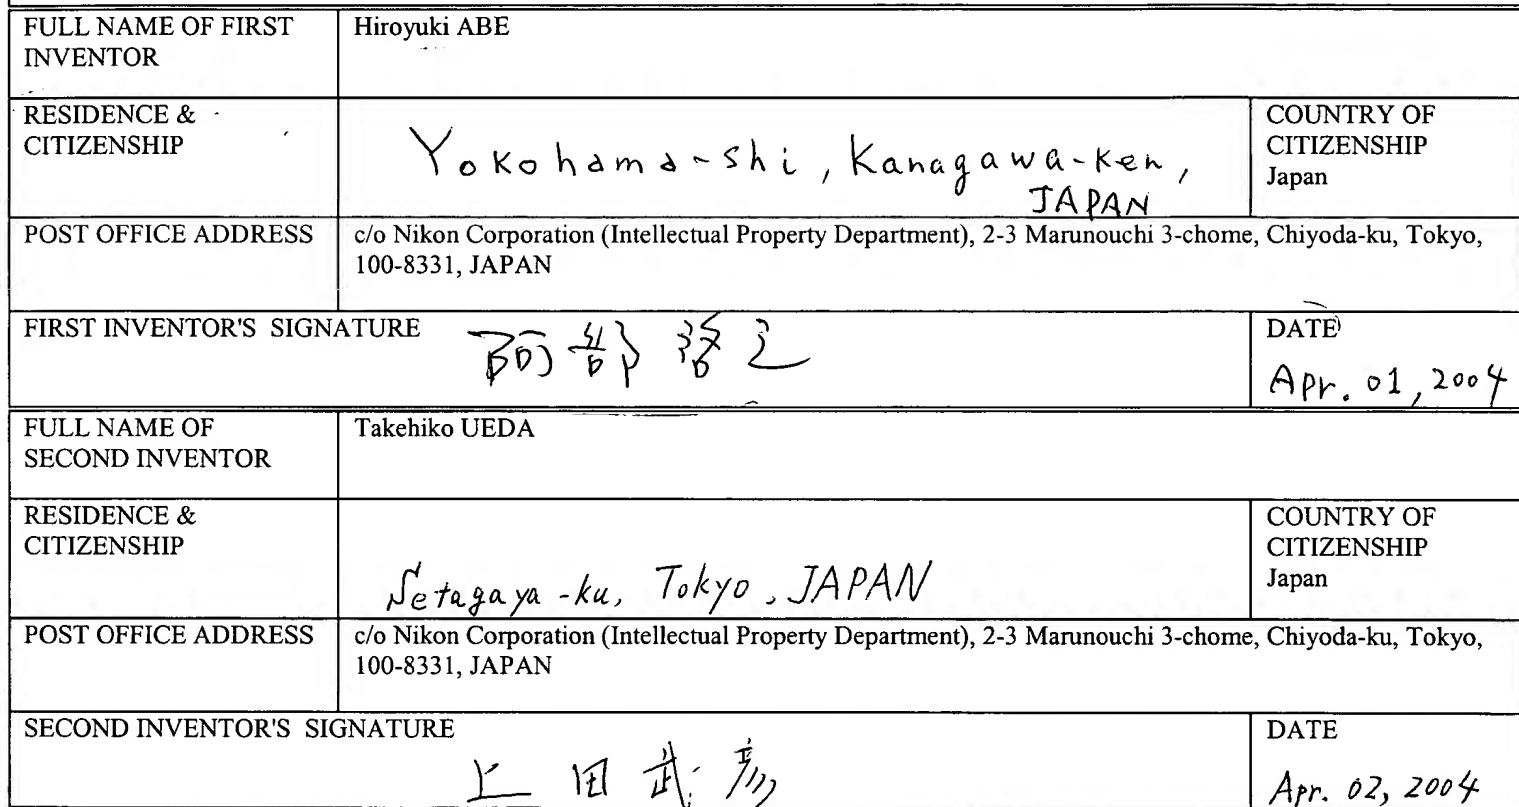 FULL NAME OF FIRST
INVENTOR
Hiroyuki ABE
RESIDENCE &
CITIZENSHIP
Yokohama-shi, Kanagawa-ken,
JAPAN
COUNTRY OF
CITIZENSHIP
Japan
POST OFFICE ADDRESS
c/o Nikon Corporation (Intellectual Property Department), 2-3 Marunouchi 3-chome, Chiyoda-ku, Tokyo,
100-8331, JAPAN
FIRST INVENTOR'S SIGNATURE
阿部
DATE
Apr. 01, 2004
FULL NAME OF
SECOND INVENTOR
Takehiko UEDA
RESIDENCE &
CITIZENSHIP
Setagaya-ku, Tokyo, JAPAN
COUNTRY OF
CITIZENSHIP
Japan
POST OFFICE ADDRESS
c/o Nikon Corporation (Intellectual Property Department), 2-3 Marunouchi 3-chome, Chiyoda-ku, Tokyo,
100-8331, JAPAN
SECOND INVENTOR'S SIGNATURE
上田武彦
DATE
Apr. 02, 2004